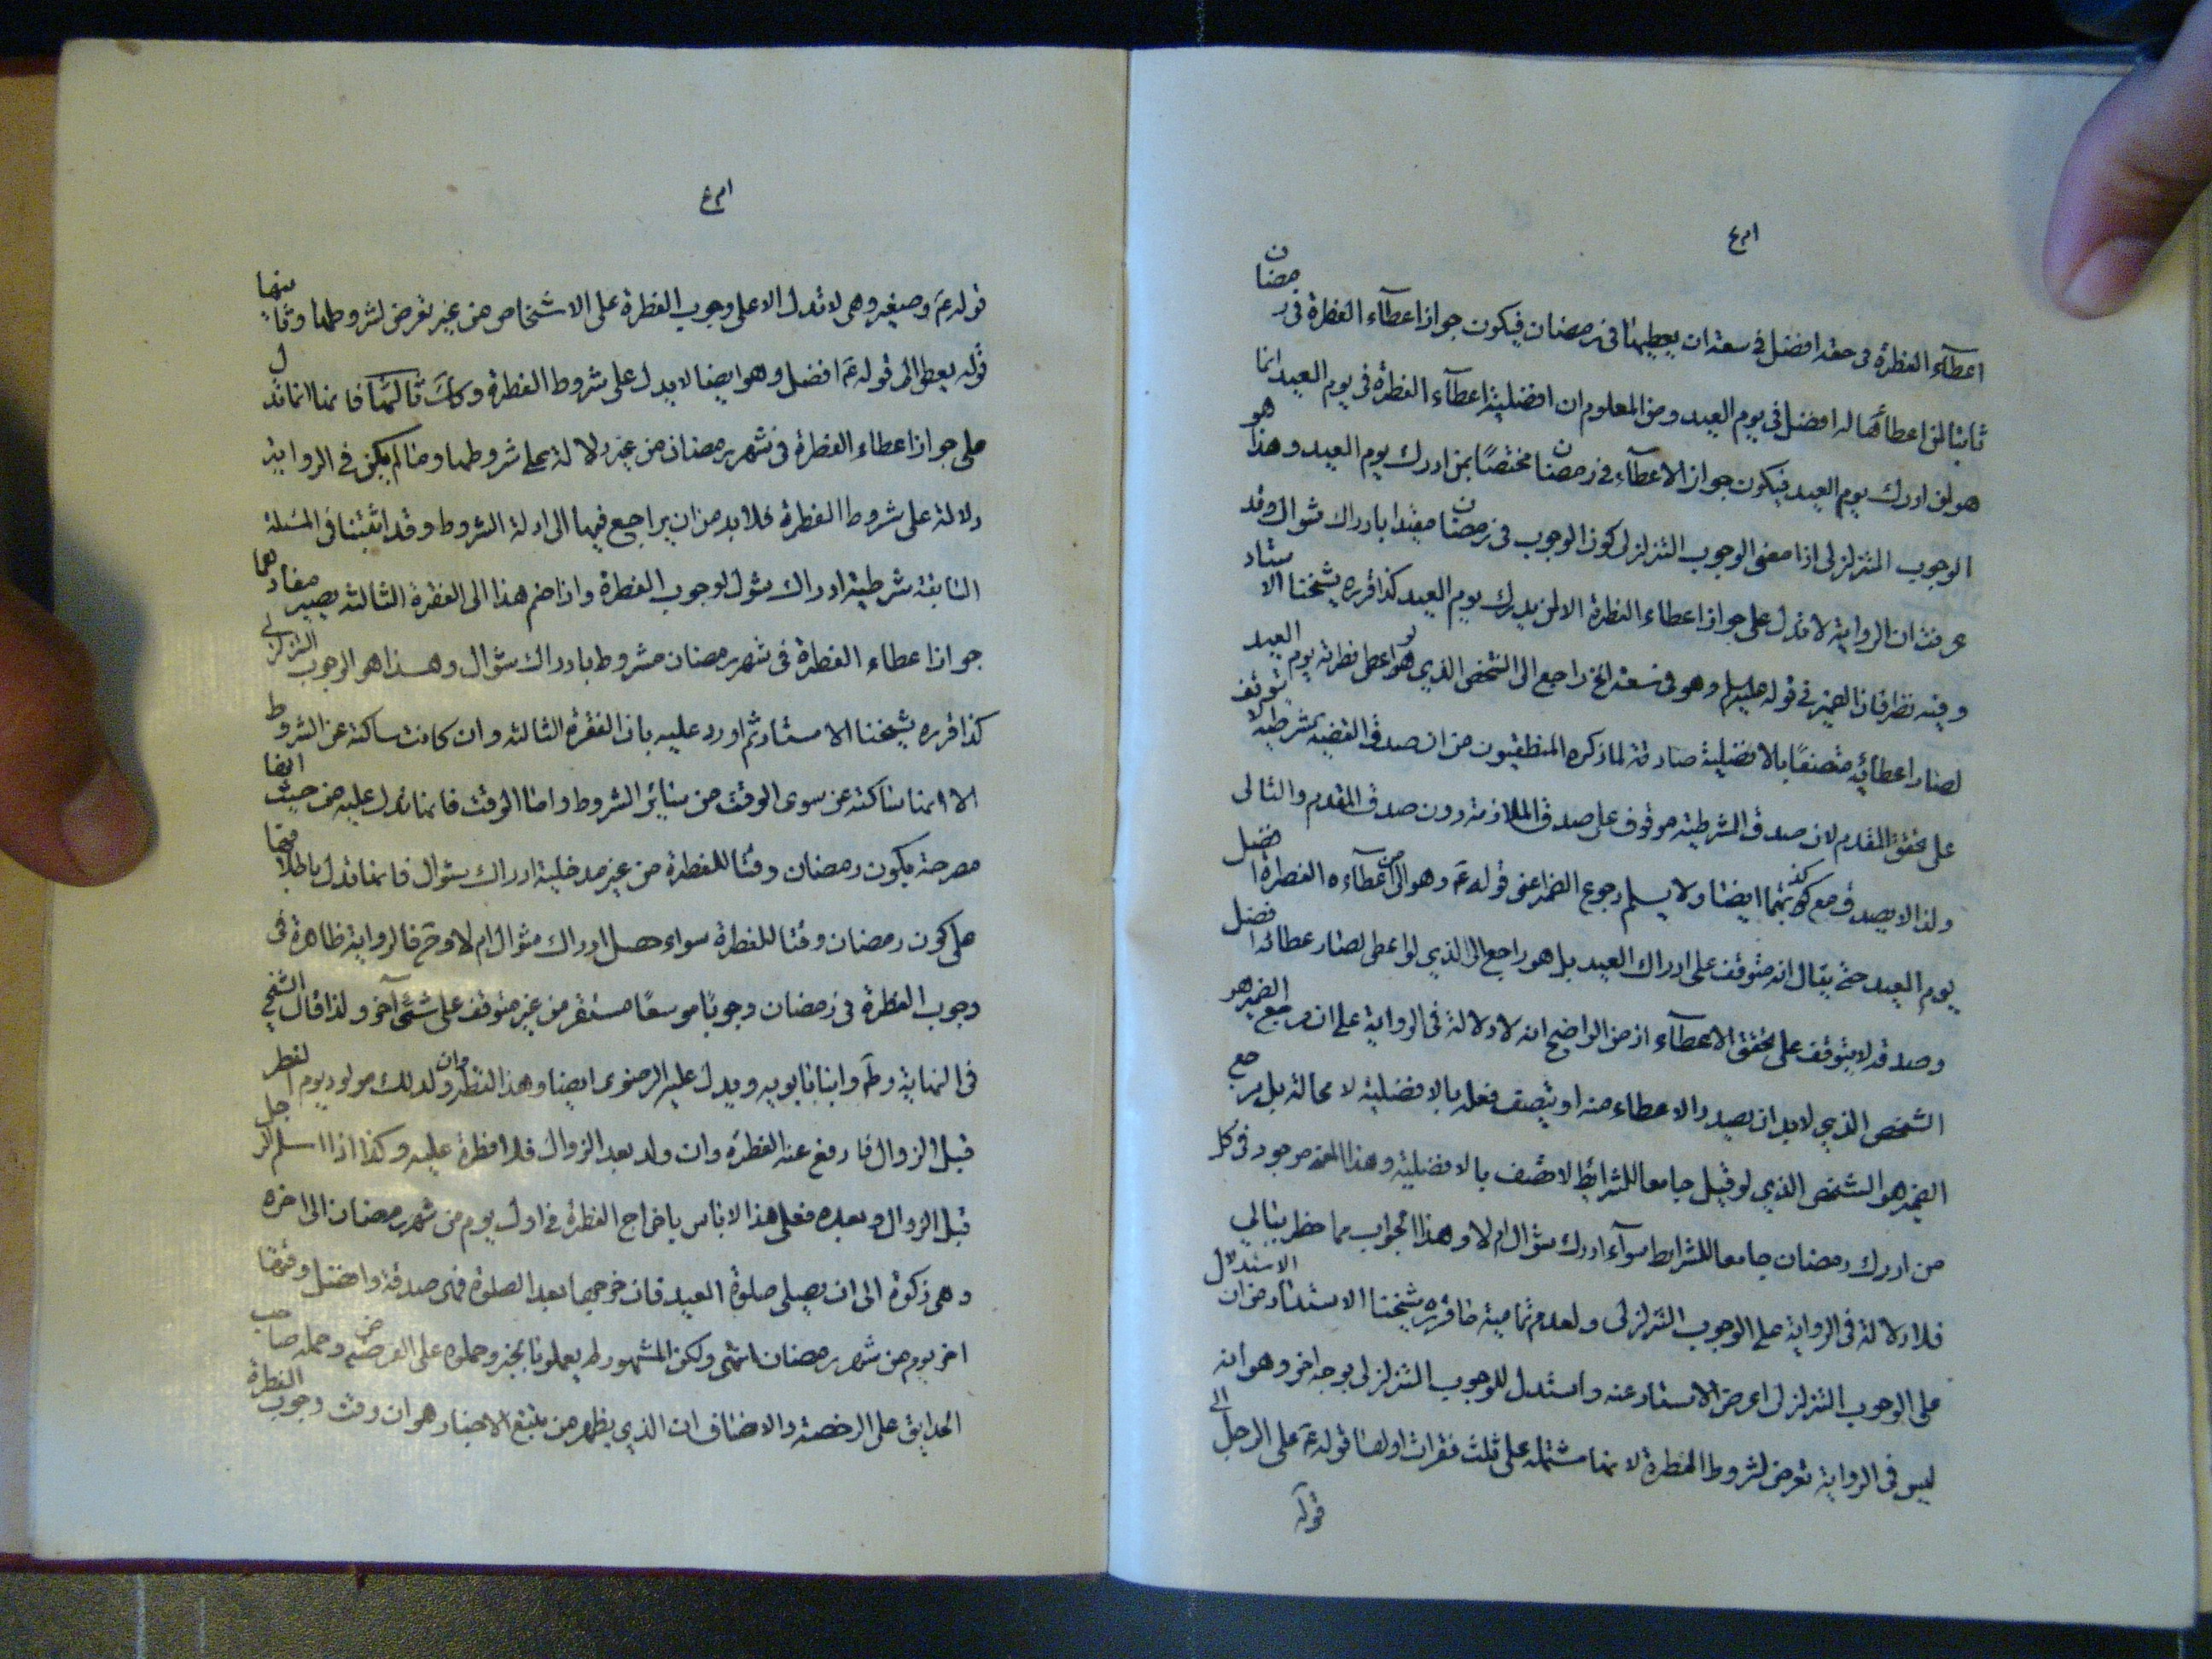 اعطآء الفطرة فى حقه افضل فى سعة ان يعطيها فى رمضان فيكون جواز اعطآء الفطرة فى رمضان
ثابتا لمن اعطائها له افضل فى يوم العيد ومن المعلوم ان افضلية اعطآء الفطرة فى يوم العيد انما
هو لمن ادرك يوم العيد فيكون جواز الاعطآء فى رمضان مختصا بمن ادرك يوم العيد وهذا هو
الوجوب المتزلزل اذا معنى الوجوب المتزلزل كون الوجوب فى رمضان مقيدا بادراك شوال وقد
عرفت ان الرواية لا تدل على جواز اعطاء الفطرة الا لمن يدرك يوم العيد كذا قرره شيخنا الاستاد
وفيه نظر فان الضمير فى قوله عليه السلم وهو فى سعة الخ راجع الى الشخص الذي هو لو اعطى فطرته يوم العيد
لصار اعطائه متصفا بالافضلية صادقة لما ذكره المنطقيون من ان صدق القضية الشرطية لا يتوقف
على تحقق المقدم لان صدق الشرطية موقوف على صدق الملازمة دون صدق المقدم والتالى
ولذا لا يصدق مع كذبهما ايضا ولا يسلم رجوع الضمير اعنى قوله ع وهو الى من اعطآءه الفطرة افضل
يوم العيد حتى يقال انه متوقف على ادراك العيد بل هو راجع الى الذي لو اعطى لصار عطائه افضل
وصدقه لا يتوقف على تحقق الاعطآء اذ من الواضح انه لا دلالة فى الرواية على ان مرجع الضمير هو
الشخص الذي لابد ان يصدر الاعطاء منه او يتصف فعله بالافضلية لا محالة بل مرجع
الضمير هو الشخص الذي لو قيل جامعا للشرائط لاتصف بالافضلية وهذا المعنى موجود فى كل
من ادرك رمضان جامعا للشرايط سوآء ادرك شوال ام لا وهذا الجواب مما خطر ببالي
فلا دلالة فى الرواية على الوجوب المتزلزل ولعدم تمامية ما قرره شيخنا الاستاد من ان الاستدلال
على الوجوب المتزلزل اعرض الاستاد عنه واستدل للوجوب المتزلزل بوجه اخر وهو انه
ليس فى الرواية تعرض لشروط الفطرة لانها مشتملة على ثلث فقرات اولها قوله ع على الرجل الى
قوله
قوله ع وصغير وهى لا تدل الا على وجوب الفطرة على الاشخاص من غير تعرض لشروطها وثانيها
قوله يعطى الى قوله ع افضل وهو ايضا لا يدل على شروط الفطرة وكك ثالثها فانها انما تدل
على جواز اعطاء الفطرة فى شهر رمضان من غير دلالة على شروطها وما لم يكن فى الرواية
دلالة على شروط الفطرة فلابد من ان يراجع فيها الى ادلة الشروط وقد اثبتنا فى المسئلة
السابقة شرطية ادراك شوال لوجوب الفطرة واذا ضم هذا الى الفقرة الثالثة يصير مفادهما
جواز اعطاء الفطرة فى شهر رمضان مشروط بادراك شوال وهذا هو الوجوب المتزلزل
كذا قرره شيخنا الاستاد ثم اورد عليه بان الفقرة الثالثة وان كانت ساكتة عن الشروط
الا انها ساكتة عن سوى الوقت من سائر الشروط واما الوقت فانها تدل عليه من حيث انها
مصرحة بكون رمضان وقتا للفطرة من غير مدخلية ادراك شوال فانها تدل باطلاقها
على كون رمضان وقتا للفطرة سواء حصل ادراك شوال ام لا وح فالرواية ظاهرة فى
وجوب الفطرة فى رمضان وجوبا موسعا مستقر من غير متوقف على شئ آخر ولذا قال الشيخ
فى النهاية وط وابنا بابويه ويدل عليه الرضوى ايضا وهذا لفظه وان ولد لك مولود يوم الفطر
قبل الزوال فادفع عنه الفطرة وان ولد بعد الزوال فلا فطرة عليه وكذا اذا اسلم الرجل
قبل الزوال وبعده فعلى هذا لا باس باخراج الفطرة فى اول يوم من شهر رمضان الى اخره
وهى زكوة الى ان يصلى صلوة العيد فان خرجها بعد الصلوة فهى صدقة وافضل وقتها
اخر يوم من شهر رمضان انتهى ولكن المشهور لم يعملوا بالخبر وحملوه على القرض وحمله صاحب
الحدايق على الرخصة والانصاف ان الذي يظهر من تتبع الاخبار هو ان وقت وجوب الفطرة